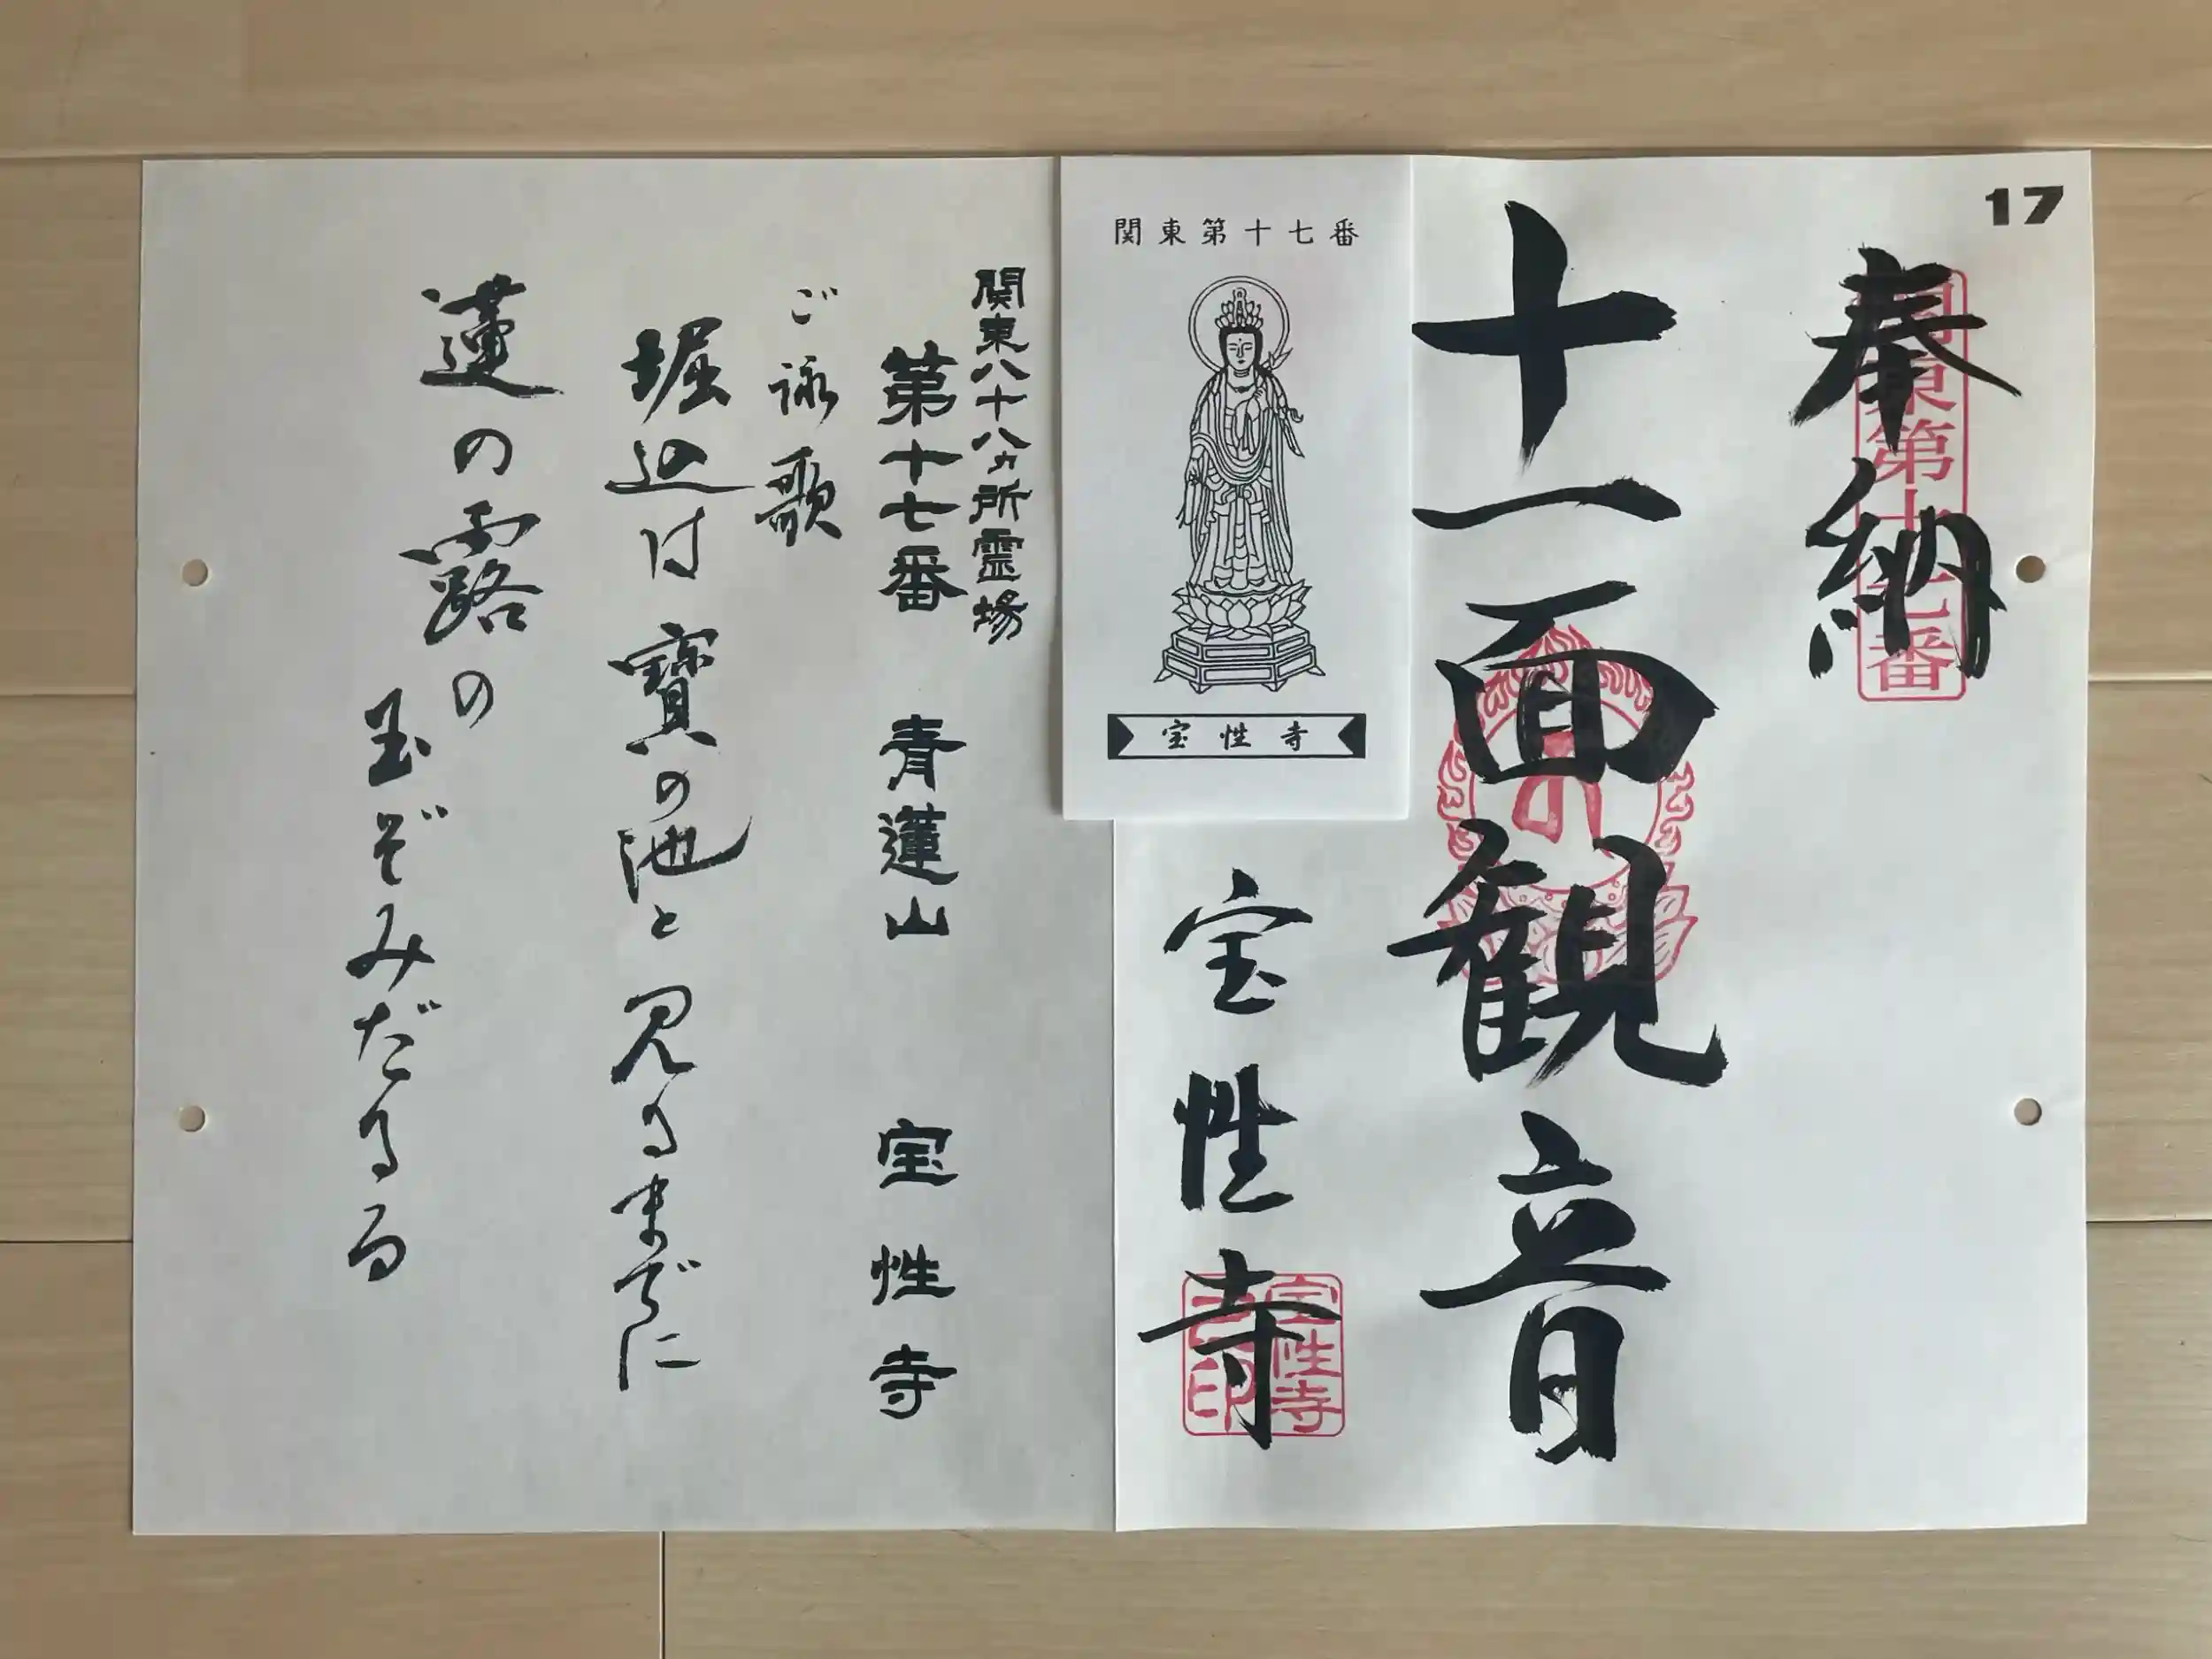 17
奉納
関東第十七番
十一面観音
宝性寺
宝性寺
之印
関東第十七番
宝性寺
関東八十八ヵ所霊場
第十七番 青蓮山 宝性寺
ご詠歌
堀込は寶の池と見るまでに
蓮の露の
玉ぞみだるる